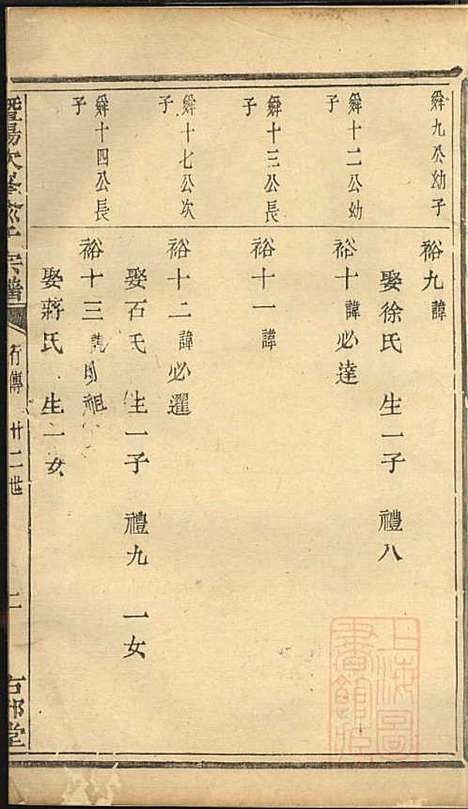 舜九公幼子
裕九諱
娶徐氏 生一子 禮八
舜十二公幼子
裕十諱必達
舜十三公長子
裕十一諱
舜十七公次子
裕十二諱必暹
娶石氏 生一子 禮九 一女
舜十四公長子
裕十三諱 祖
娶蔣氏 生一女
暨陽 宗譜
行傳 廿二世
二
上海圖書館